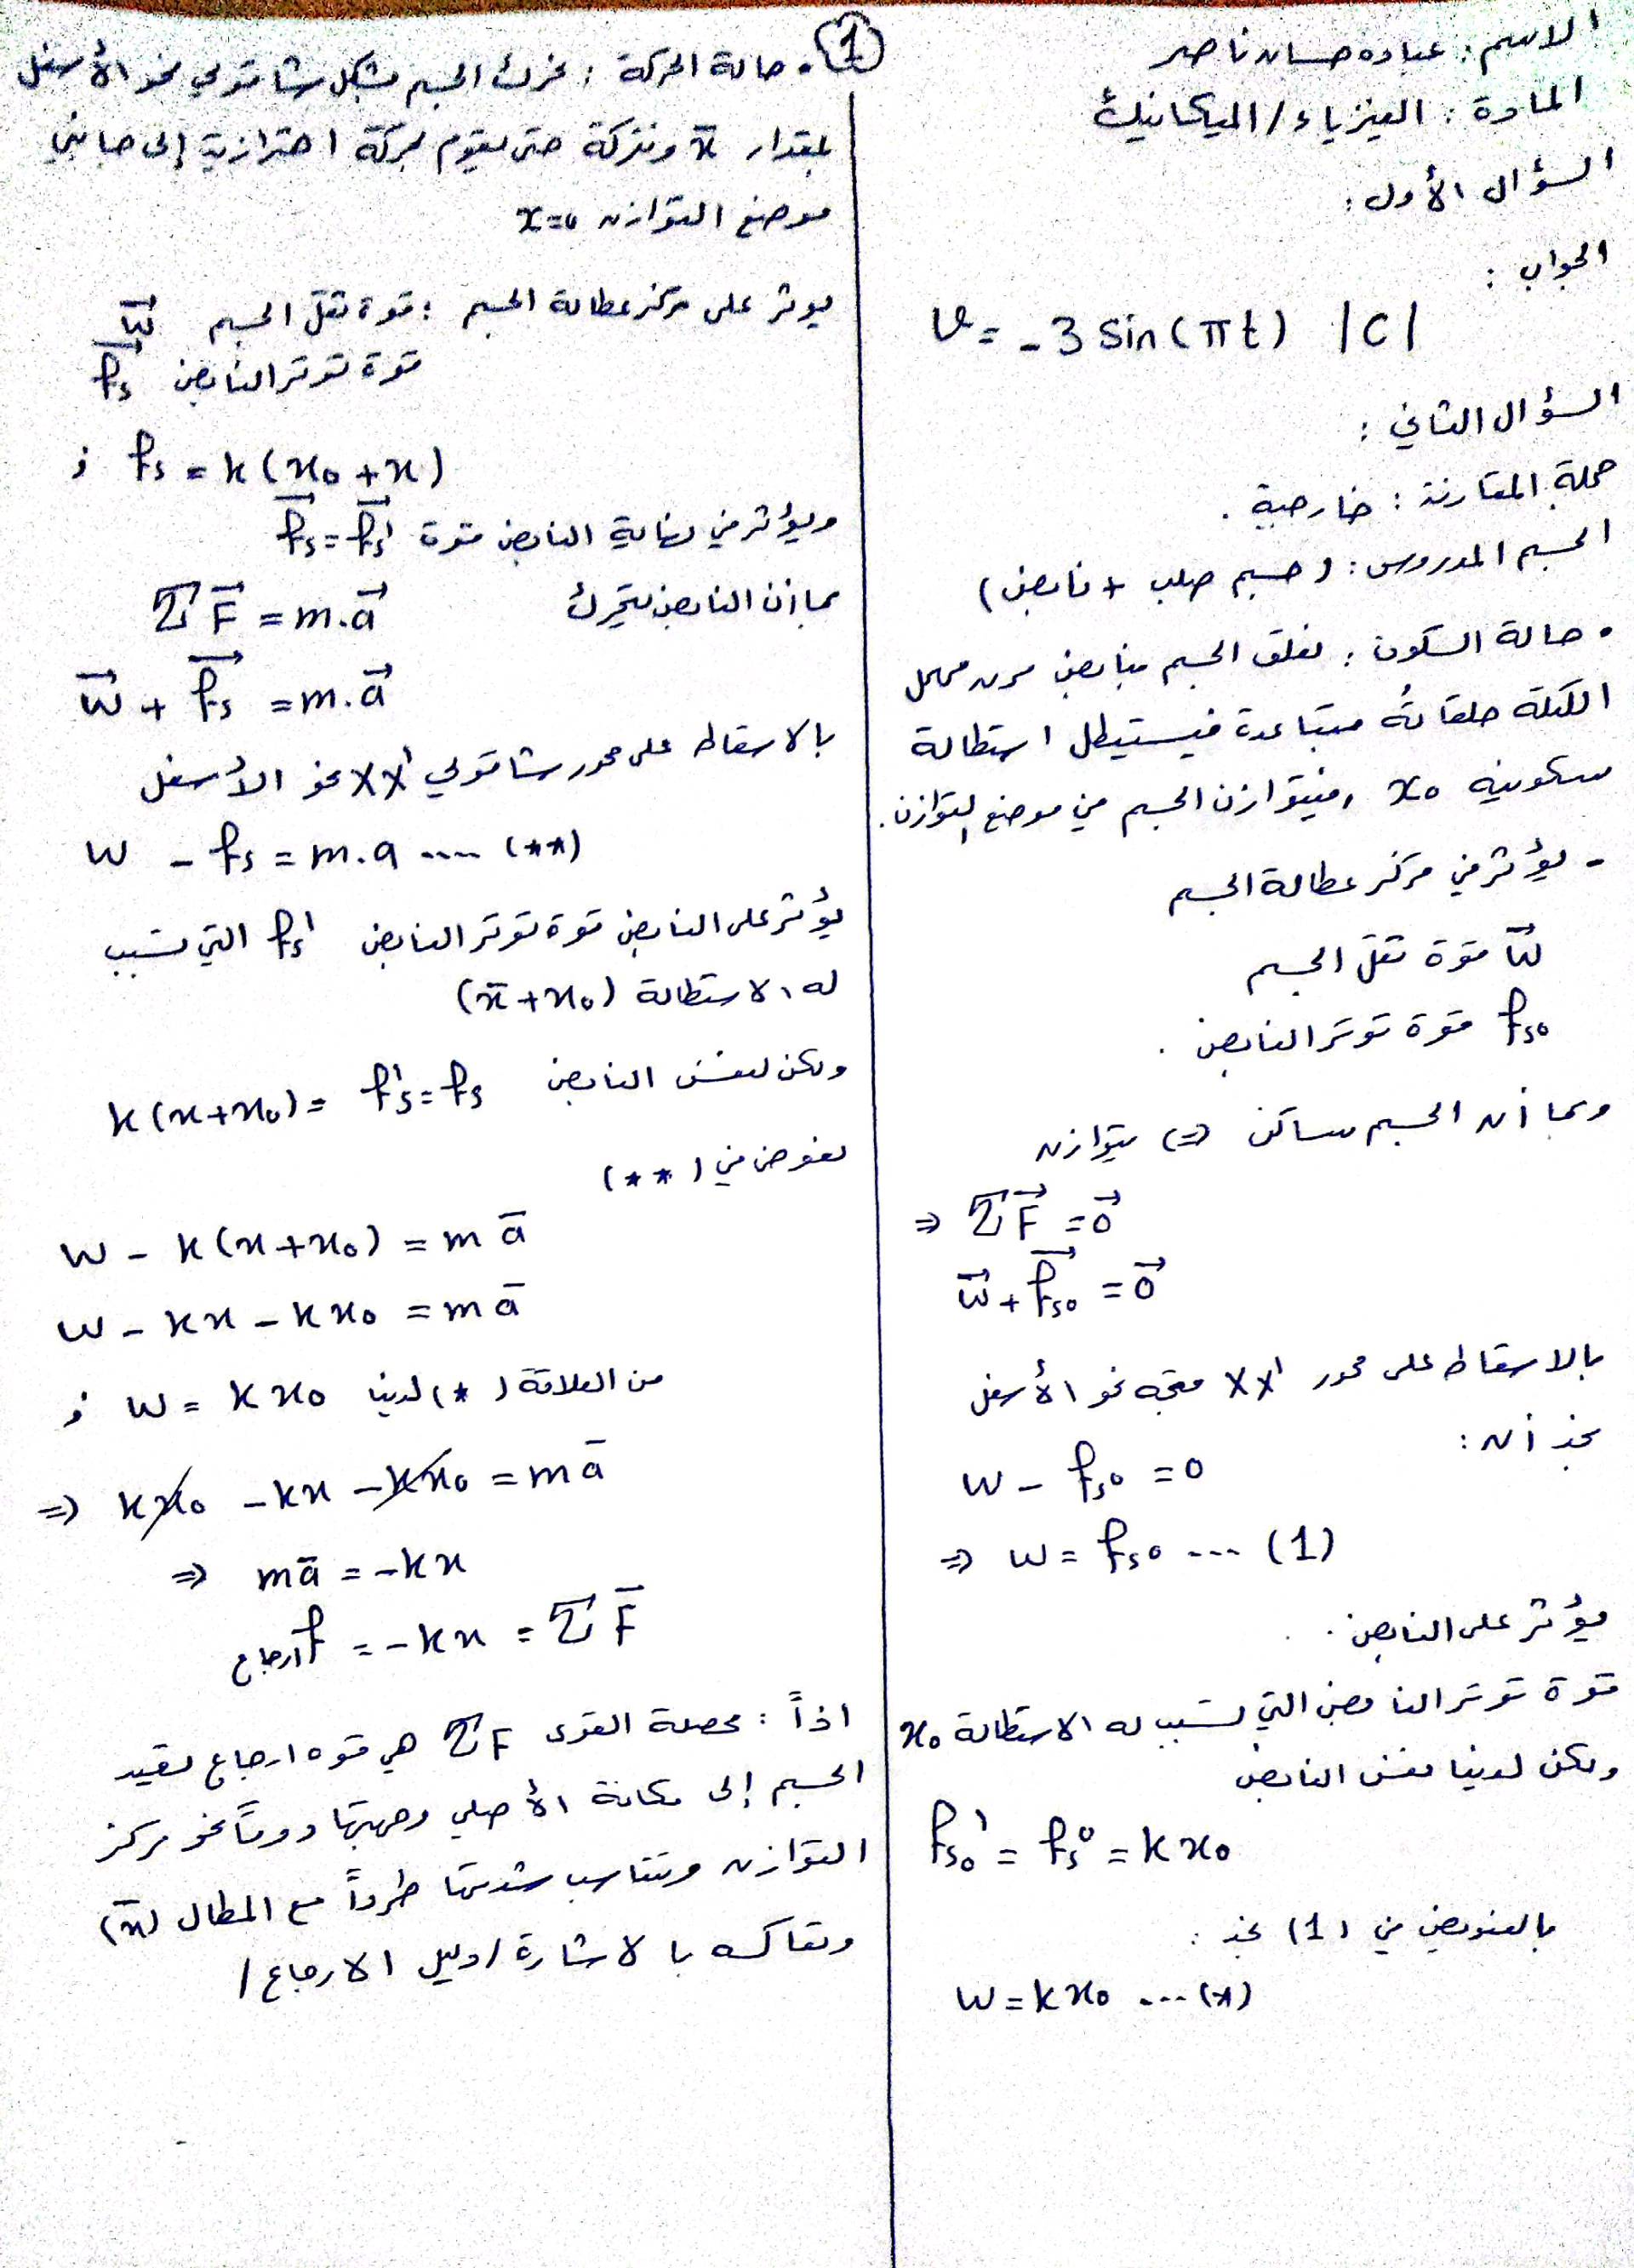 الاسم: عباده حسان ناصر
المادة: الفيزياء / الميكانيك
السؤال الأول:
الجواب:
v = - 3 sin(πt) |C|
السؤال الثاني:
جملة المقارنة: خارجية.
الجسم المدروس: (جسم صلب + نابض)
• حالة السكون: نعلق الجسم بنابض مرن مهمل
الكتلة حلقاته متباعدة فيستطيل استطالة
سكونية x₀ ، فيتوازن الجسم في موضع التوازن.
- يؤثر في مركز عطالة الجسم
W⃗ قوة ثقل الجسم
fs₀ قوة توتر النابض.
وبما أن الجسم ساكن ⇐ يتوازن
⇒ ΣF⃗ = 0⃗
W⃗ + f⃗s₀ = 0⃗
بالاسقاط على محور xx' متجه نحو الأسفل
نجد أن:
W - fs₀ = 0
⇒ W = fs₀ ... (1)
يؤثر على النابض.
قوة توتر النابض التي تسبب له الاستطالة x₀
ولكن لدينا نفس النابض
f's₀ = fs⁰ = k x₀
بالتعويض في (1) نجد:
W = k x₀ ... (*)
(1)
• حالة الحركة: نحرك الجسم بشكل شاقولي نحو الأسفل
بمقدار x̄ ونتركة حتى يقوم بحركة اهتزازية إلى جانبي
موضع التوازن x=0
يوثر على مركز عطالة الجسم: قوة ثقل الجسم W⃗
قوة توتر النابض f⃗s
fs = k(x₀ + x) ;
ويؤثر في نهاية النابض قوة f⃗s = f⃗s'
بما أن النابض يتحرك ΣF⃗ = m.a⃗
W⃗ + f⃗s = m.a⃗
بالاسقاط على محور شاقولي xx' نحو الأسفل
W - fs = m.a .... (**)
يؤثر على النابض قوة توتر النابض fs' التي تسبب
له الاستطالة (x̄ + x₀)
ولكن لنفس النابض f's = fs = k(x + x₀)
نعوض في (**)
W - k(x + x₀) = m ā
W - kx - kx₀ = m ā
من العلاقة (*) لدينا W = k x₀ ;
⇒ kx₀ - kx - kx₀ = m ā
⇒ m ā = -kx
f ارجاع = -kx = ΣF̄
اذاً: محصلة القوى ΣF هي قوه ارجاع لتعيد
الجسم إلى مكانة الأصلي وجهتها دوماً نحو مركز
التوازن وتتناسب شدتها طرداً مع المطال (x̄)
وتعاكسه بالاشارة / دليل الارجاع /